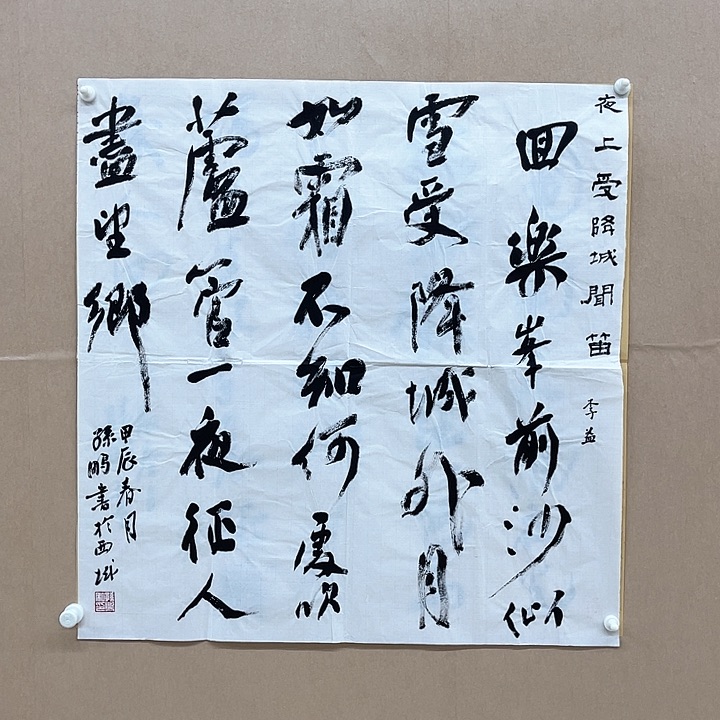 夜上受降城聞笛 李益
回樂峯前沙似
雪受降城外月
如霜不知何處吹
蘆管一夜征人
盡望鄉
甲辰春月
孫鵬書於西城